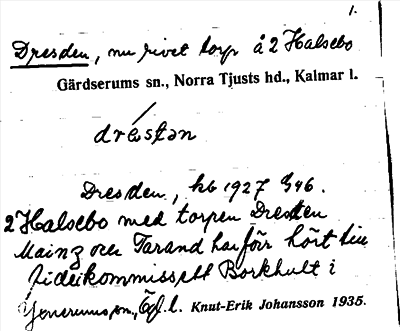 1.
Dresden, nu rivet torp å 2 Halsebo
Gärdserums sn., Norra Tjusts hd., Kalmar l.
dre̍stən
Dresden, kb 1927 § 46.
2 Halsebo med torpen Dresden
Mainz och Tarand har förr hört till
fideikommisset Borkhult i
Yxnerums sn., Ögl. l. Knut-Erik Johansson 1935.